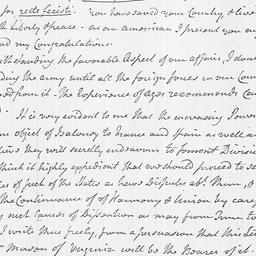 for rede fecisti. You have saved your Country & live
with Liberty & peace - as an american I present you my
and my Congratulations.
withstanding the favorable Aspect of our affairs, I do not
ding the army until all the foreign forces in our Coun
ed from it. The Experience of ages recommends Cau
It is very evident to me that the increasing Power
an object of Jealousy to France and Spain as well as
tions they will secretly endeavour to foment Division
think it highly expedient that we should proceed to se
ies of such of the States as have Disputes abt. them, &
the Continuance of Harmony & Union by care
ry such Cause of Dissention as may from Time to
I write thus freely, from a persuasion that this Let
Mr Mason of Virginia will be the Bearer of it.